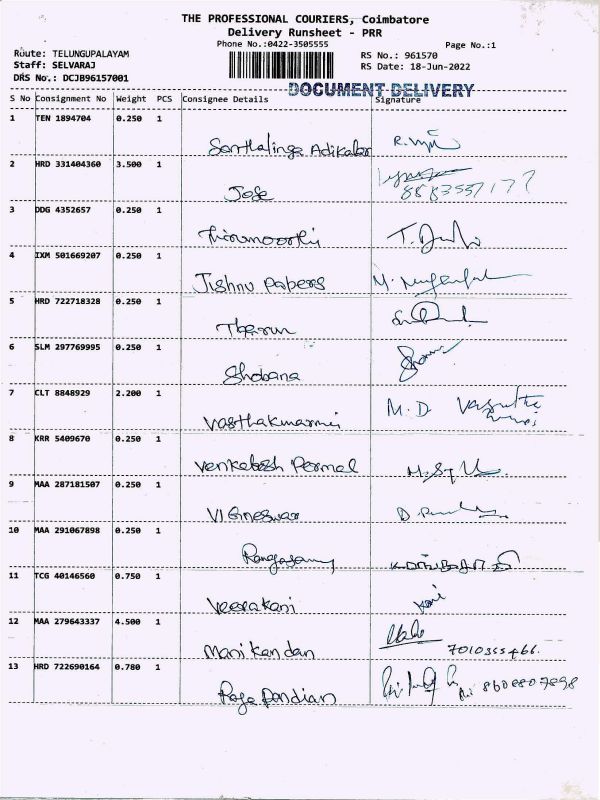 THE PROFESSIONAL COURIERS, Coimbatore
Delivery Runsheet - PRR
Phone No.:0422-3505555
Page No.:1
Route: TELUNGUPALAYAM
RS No.: 961570
Staff: SELVARAJ
RS Date: 18-Jun-2022
DRS No.: DCJB96157001
DOCUMENT DELIVERY
S No Consignment No Weight PCS Consignee Details Signature
1 TEN 1894704 0.250 1
Santhalinga Adikalar
2 HRD 331404360 3.500 1
Jose
3 DDG 4352657 0.250 1
4 IXM 501669207 0.250 1
Jishnu Papers
5 HRD 722718328 0.250 1
Tharun
6 SLM 297769995 0.250 1
Shobana
7 CLT 8848929 2.200 1
M. D.
8 KRR 5409670 0.250 1
Venkatesh Permal
9 MAA 287181507 0.250 1
Vigneswar
10 MAA 291067898 0.250 1
Rangasamy
11 TCG 40146560 0.750 1
Veerakani
12 MAA 279643337 4.500 1
Mani kandan 7010355466.
13 HRD 722690164 0.780 1
Raja Pandian 8608807898